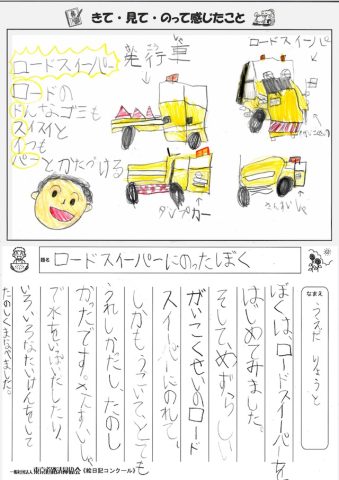 きて・見て・のって感じたこと
ロードスイーパー
ロードの
どんなゴミも
スイスイと
いつも
パーとかたづける
先行車
しゃ
ロードスイーパー
ダンプカー
さんすいしゃ
題名
ロードスイーパーにのったぼく
なまえ
うえだ りょうと
ぼくは、ロードスイーパーを
はじめてみました。
そして、めずらしい
がいこくせいのロード
スイーパーにのれて、
しかも、うごいて、とても
うれしかったし、たのし
かったです。さんすいしゃ
で水をいっぱいだしたり、
いろいろなたいけんをして
たのしくまなべました。
(絵日記コンクール)